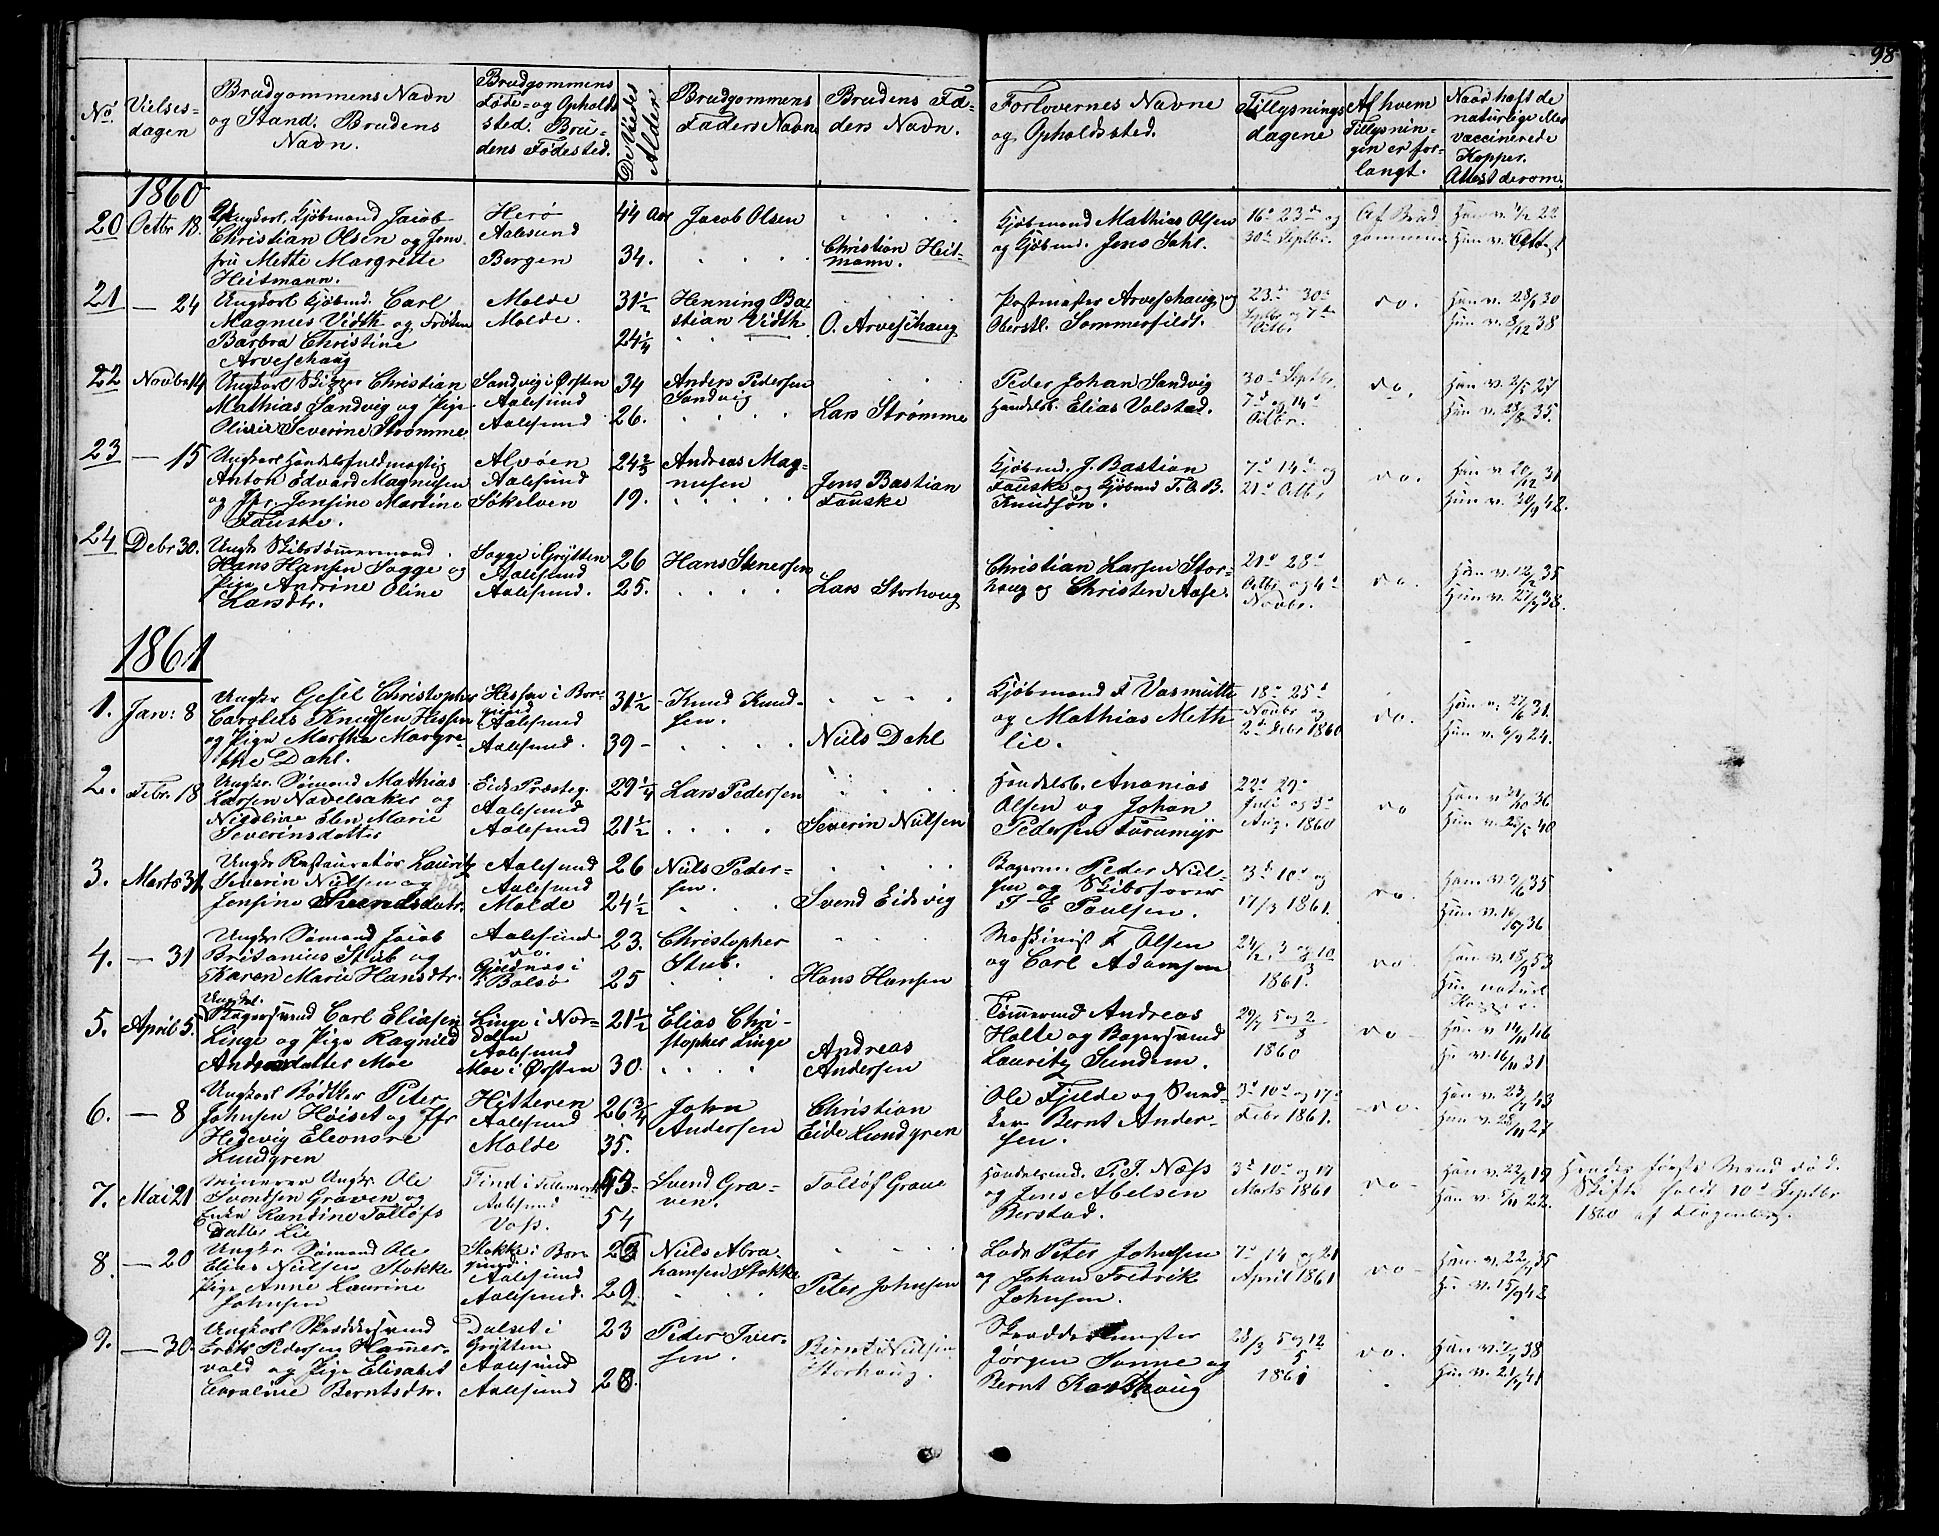 98
No.
Vielses-
dagen
Brudgommens Navn
og Stand. Brudens
Navn.
Brudgommens
Føde- og Opholds
sted. Bru-
dens Fødested.
De Viedes
Alder.
Brudgommens
Faders Navn.
Brudens Fa-
ders Navn.
Forlovernes Navne
og Opholdssted.
Tillysnings
dagene
Af hvem
Tillysnin-
gen er for-
langt.
Naar haft de
naturlige eller
vaccinerede
Kopper.
Attest derom.
1860
20
Octbr 18.
Ungkarl, Kjøbmand Jacob
Christian Olsen og Jom-
fru Mette Margrette
Heitmann.
Herø
Aalesund
Bergen
44 Aar
34.
Jacob Olsen
Christian Heit-
mann.
Kjøbmand Mathias Olsen
og Kjøbmd. Jens Dahl.
16d 23d og
30d Septbr.
Af Brud
gommen
Han v. 1/12 22
Hun v. Attest
21
— 24
Ungkarl Kjøbmd. Carl
Magnus Vidth og Frøken
Barbra Christine
Arveschaug
Molde
Molde.
31 1/2
24 1/4
Henning Ba-
stian Vidth
O. Arveschaug
Postmester Arveschaug og
Oberstl. Sommerfeldt.
23d 30d
Septbr og 7d
Octbr
do.
Han v. 28/8 30
Hun v. 8/12 38
22
Novbr 14
Ungkarl Skipper Christian
Mathias Sandvig og Pige
Severine Strømme
Sandvig i Ørsten
Aalesund
Aalesund
34
26.
Anders Pedersen
Sandvig
Lars Strømme
Peder Johan Sandvig
Handelsb. Elias Volstad.
30d Septbr.
7d og 14d
Octbr.
do.
Han v. 2/5 27
Hun v. 28/8 35.
23
— 15
Ungkarl Handelsfuldmægtig
Anton Edvard Magnusen
og Jfr. Jensine Martine
Fauske.
Alvøen
Aalesund
Søkelven
24 2/3
19.
Andreas Mag-
nusen
Jens Bastian
Fauske
Kjøbmd. J. Bastian
Fauske og Kjøbmd T. O. B.
Knudsøn.
7d 14d og
21d Octbr.
do.
Han v. 20/12 31
Hun v. 30/9 42.
24
Debr 30.
Ungk. Skibstømmermand
Hans Hansen Sogge og
Pige Andrine Oline
Larsdtr.
Sogge i Grytten
Aalesund
Aalesund.
26
25.
Hans Stenersen
Lars Storhoug
Christian Larsen Stor-
houg og Christen Aase.
21d 28d
Octbr og 4d
Novbr.
do.
Han v. 12/2 35
Hun v. 27/9 38.
1861
1.
Jan: 8
Ungkr. Gesil Christopher
Carolus Knudsen Hessen
og Pige Martha Margre-
the Dahl.
Hessen i Bor-
gund
Aalesund
Aalesund.
31 1/2
39 -
Knud Knud-
sen.
Niels Dahl
Kjøbmand F Vasmutte
og Mathias Meth
lie.
18d 25d
Novbr og
2d Debr 1860
do.
Han v. 27/6 31.
Hun v. 6/9 24.
2.
Febr. 18
Ungkr. Sømand Mathias
Larsen Navelsaker og
Nicoline Elen Marie
Severinsdatter
Eids Præsteg.
Aalesund
Aalesund
29 1/4
21 1/2
Lars Pedersen
Severin Nielsen
Handelsb. Ananias
Olsen og Johan
Pedersen Furumyr
22d 29d
Juli og 5d
Aug. 1860
do
Han v. 21/10 36
Hun v. 25/5 40.
3.
Marts 31.
Ungkr Restauratør Lauritz
Severin Nielsen og
Jensine Svendsdatr.
Aalesund
Aalesund
Molde
26
24 1/2
Niels Peder-
sen.
Svend Eidsvig
Bagerm. Peder Niel-
sen og Skibsfører
T E Paulsen.
3d 10d og
17/3 1861.
do.
Han v. 9/6 35
Hun v. 16/10 36
4.
— 31
Ungkr Sømand Jacob
Britanius Stub og
Karen Marie Hansdtr.
Aalesund
do.
Gjednæs i
Bolsø
23.
25
Christopher
Stub.
Hans Hansen
Maskinist F Olsen
og Carl Adamsen
24/2 3 og 10/3
1861.
do
Han v. 18/9 53
Hun naturl
Kopper.
5.
April 5.
Ungkl.
Bagersvend Carl Eliasen
Linge og Pige Ragnild
Andersdatter Moe
Linge i Nor-
dalen
Aalesund
Moe i Ørsten
21 1/2
30.
Elias Chri-
stopher Linge
Andreas
Andersen
Tømmermd Andreas
Holte og Bagersvend
Lauritz Sundem.
1860
do
Han v. 14/11 46
Hun v. 16/11 31
6.
— 8
Ungkarl Bødtker Peter
Johnsen Høiset og Jfr
Hedevig Eleonore
Lundgren
Hitteren
Aalesund
Molde
26 3/4
35.
John
Andersen
Christian
Eide Lundgren
Ole Fjelde og Sned-
ker Bernt Ander-
sen.
3d 10d og 17d
Febr 1861.
do.
Han v. 23/7 43
Hun v. 28/11 27
7.
Mai 21
Minerer Ungkr. Ole
Svendsen Graven og
Enke Randine Tolløfs
datter Lie
Aalesund
Voss.
43
54
Svend Gra-
ven.
Tolløf Grave
Handelsmd. P. J. Næss
og Jens Abelsen
Berstad.
3d 10d og 17
Marts 1861
do
Han v. 22/2 19
Hun v. 5/11 22.
Hendes første Mand død.
Skifte holdt 10d Septbr
1860 af
8.
— 20
Ungkr Sømand Ole
Elias Nielsen Stokke
Pige Anne Laurine
Johnsen
Stokke i Bor-
gund.
Aalesund
Aalesund.
26
29.
Niels Abra-
hamsen Stokke
Peter Johnsen
Lods Peter Johnsen
og Johan Fredrik
Johnsen.
7d 14 og 21
April 1861
do
Han v. 22/7 35
Hun v. 15/9 42
9.
— 30.
Ungkarl Skræddersvend
Erik Pedersen Hamer-
vold og Pige Elisabet
Caroline Berntsdtr.
Dalset i
Grytten
Aalesund
Aalesund
23
28.
Peder Iver-
sen.
Bernt Nielsen
Storhoug.
Skræddermester
Jørgen Sonne og
Bernt
28/3 5 og 12/5
1861
do.
Han v. 38
Hun v. 21/7 41